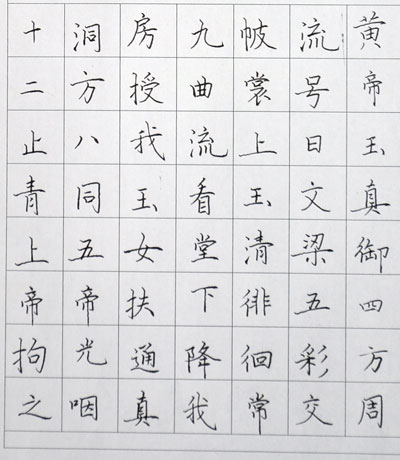 黄帝玉真御四方周
流号日文梁五彩交
帔裳上玉清徘徊常
九曲流看堂下降我
房授我玉女扶通真
洞方八同五帝光咽
十二止青上帝拘之